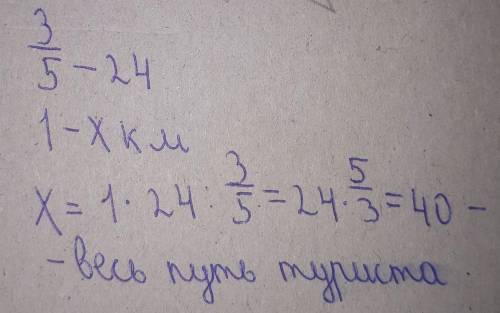 3/5 - 24
1 - х км
х = 1 · 24 : 3/5 = 24 · 5/3 = 40 -
- весь путь туриста